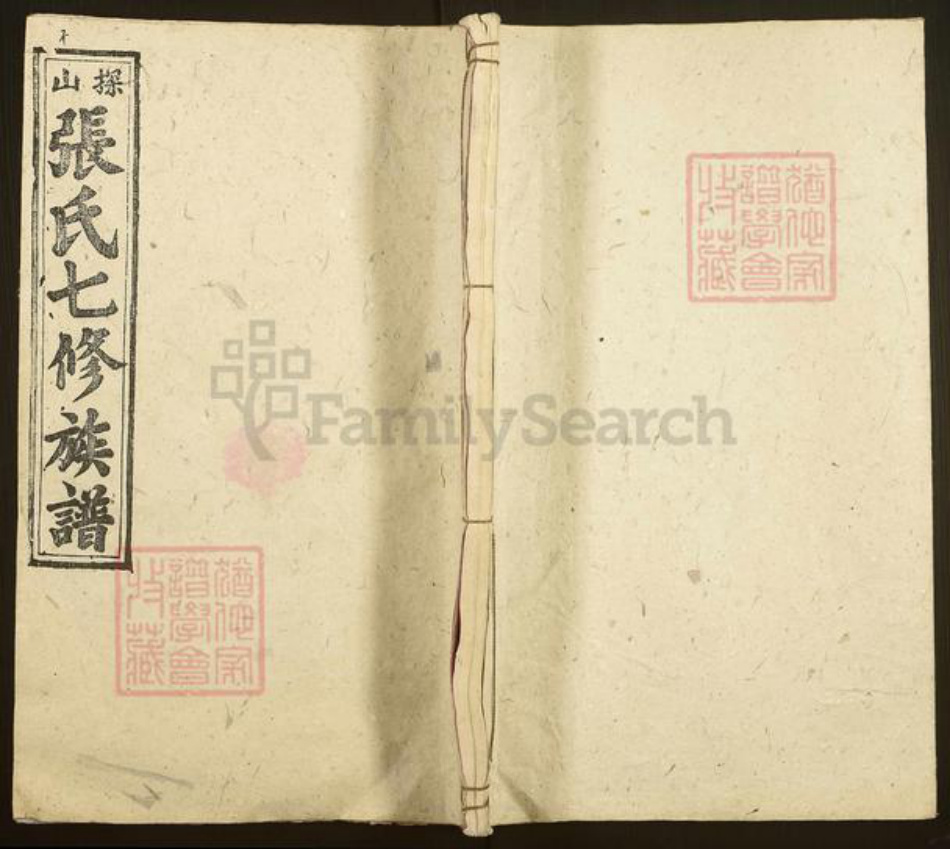 探山
張氏七修族譜
猶他家
譜學會
收藏
FamilySearch
猶他家
譜學會
收藏